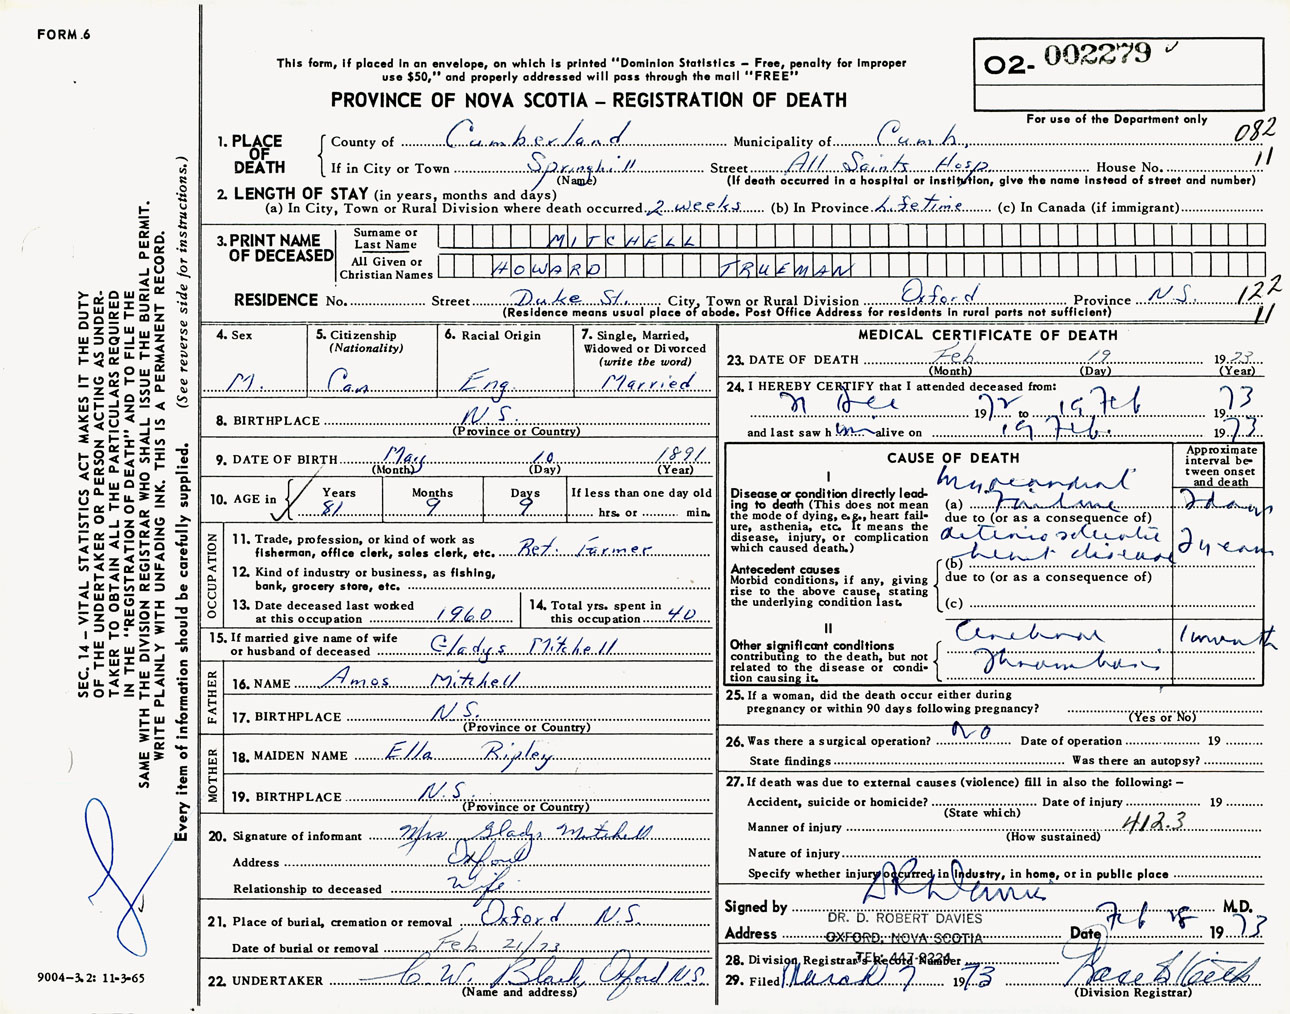 FORM 6
This form, if placed in an envelope, on which is printed "Dominion Statistics – Free, penalty for improper
use $50," and properly addressed will pass through the mail "FREE"
PROVINCE OF NOVA SCOTIA – REGISTRATION OF DEATH
02- 002279
For use of the Department only
082
11
1. PLACE OF DEATH
County of Cumberland Municipality of Cumb.
If in City or Town Springhill Street All Saints Hosp House No.
(Name) (If death occurred in a hospital or institution, give the name instead of street and number)
2. LENGTH OF STAY (in years, months and days)
(a) In City, Town or Rural Division where death occurred 2 weeks (b) In Province Lifetime (c) In Canada (if immigrant)
3. PRINT NAME OF DECEASED
Surname or Last Name MITCHELL
All Given or Christian Names HOWARD TRUEMAN
RESIDENCE No. Street Duke St. City, Town or Rural Division Oxford Province N.S. 122
(Residence means usual place of abode. Post Office Address for residents in rural parts not sufficient) 11
4. Sex M.
5. Citizenship (Nationality) Can
6. Racial Origin Eng
7. Single, Married, Widowed or Divorced (write the word) Married
8. BIRTHPLACE N.S.
(Province or Country)
9. DATE OF BIRTH May 10 1891
(Month) (Day) (Year)
10. AGE in Years 81 Months 9 Days 9 If less than one day old hrs. or min.
OCCUPATION
11. Trade, profession, or kind of work as fisherman, office clerk, sales clerk, etc. Ret. Farmer
12. Kind of industry or business, as fishing, bank, grocery store, etc.
13. Date deceased last worked at this occupation 1960
14. Total yrs. spent in this occupation 40
15. If married give name of wife or husband of deceased Gladys Mitchell
FATHER
16. NAME Amos Mitchell
17. BIRTHPLACE N.S.
(Province or Country)
MOTHER
18. MAIDEN NAME Ella Ripley
19. BIRTHPLACE N.S.
(Province or Country)
20. Signature of informant Mrs Gladys Mitchell
Address Oxford
Relationship to deceased Wife
21. Place of burial, cremation or removal Oxford N.S.
Date of burial or removal Feb 21/73
22. UNDERTAKER C. W. Black, Oxford N.S.
(Name and address)
MEDICAL CERTIFICATE OF DEATH
23. DATE OF DEATH Feb 19 1973
(Month) (Day) (Year)
24. I HEREBY CERTIFY that I attended deceased from:
Dec 1972 to 19 Feb 1973
and last saw him alive on 19 Feb. 1973
CAUSE OF DEATH
Approximate interval between onset and death
I
Disease or condition directly leading to death (This does not mean the mode of dying, e.g., heart failure, asthenia, etc. It means the disease, injury, or complication which caused death.)
(a) Myocardial Failure 2 days
due to (or as a consequence of)
Antecedent causes
Morbid conditions, if any, giving rise to the above cause, stating the underlying condition last.
(b) arteriosclerotic heart disease 2 years
due to (or as a consequence of)
(c)
II
Other significant conditions contributing to the death, but not related to the disease or condition causing it.
Cerebral Thrombosis 1 month
25. If a woman, did the death occur either during
pregnancy or within 90 days following pregnancy?
(Yes or No)
26. Was there a surgical operation? No Date of operation 19
State findings Was there an autopsy?
27. If death was due to external causes (violence) fill in also the following: –
Accident, suicide or homicide? Date of injury 19
(State which)
Manner of injury 412.3
(How sustained)
Nature of injury
Specify whether injury occurred in Industry, in home, or in public place
Signed by D R Davies M.D.
DR. D. ROBERT DAVIES
Address OXFORD, NOVA SCOTIA Date Feb 1973
TEL. 447-2224
28. Division Registrar's Record Number
29. Filed March 7 1973
(Division Registrar)
SEC. 14 – VITAL STATISTICS ACT MAKES IT THE DUTY
OF THE UNDERTAKER OR PERSON ACTING AS UNDER-
TAKER TO OBTAIN ALL THE PARTICULARS REQUIRED
IN THE "REGISTRATION OF DEATH" AND TO FILE THE
SAME WITH THE DIVISION REGISTRAR WHO SHALL ISSUE THE BURIAL PERMIT.
WRITE PLAINLY WITH UNFADING INK. THIS IS A PERMANENT RECORD.
Every item of information should be carefully supplied. (See reverse side for instructions.)
9004-3.2: 11-3-65